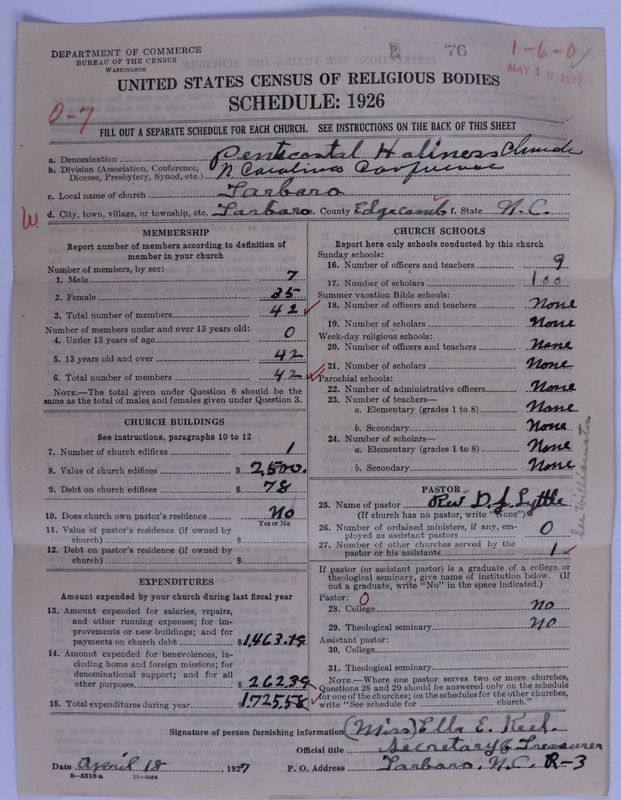 DEPARTMENT OF COMMERCE
BUREAU OF THE CENSUS
WASHINGTON
76
1-6-0
MAY 10 1927
UNITED STATES CENSUS OF RELIGIOUS BODIES
SCHEDULE: 1926
0-7
FILL OUT A SEPARATE SCHEDULE FOR EACH CHURCH. SEE INSTRUCTIONS ON THE BACK OF THIS SHEET
a. Denomination Pentecostal Holiness Church
b. Division (Association, Conference, Diocese, Presbytery, Synod, etc.) N Carolina Conference
c. Local name of church Tarboro
W. d. City, town, village, or township, etc. Tarboro e. County Edgecomb f. State N.C.
MEMBERSHIP
Report number of members according to definition of
member in your church
Number of members, by sex:
1. Male 7
2. Female 35
3. Total number of members 42
Number of members under and over 13 years old:
4. Under 13 years of age 0
5. 13 years old and over 42
6. Total number of members 42
NOTE.—The total given under Question 6 should be
same as the total of males and females given under Question 3.
CHURCH BUILDINGS
See instructions, paragraphs 10 to 12
7. Number of church edifices 1
8. Value of church edifices $ 2,500.
9. Debt on church edifices $ 78
10. Does church own pastor's residence No
Yes or No
11. Value of pastor's residence (if owned by
church) $
12. Debt on pastor's residence (if owned by
church) $
EXPENDITURES
Amount expended by your church during last fiscal year
13. Amount expended for salaries, repairs,
and other running expenses; for im-
provements or new buildings; and for
payments on church debt $1,463.19
14. Amount expended for benevolences, in-
cluding home and foreign missions; for
denominational support; and for all
other purposes $ 262.39
15. Total expenditures during year $1,725.58
CHURCH SCHOOLS
Report here only schools conducted by this church
Sunday schools:
16. Number of officers and teachers 9
17. Number of scholars 100
Summer vacation Bible schools:
18. Number of officers and teachers None
19. Number of scholars None
Week-day religious schools:
20. Number of officers and teachers None
21. Number of scholars None
Parochial schools:
22. Number of administrative officers None
23. Number of teachers—
a. Elementary (grades 1 to 8) None
b. Secondary None
24. Number of scholars—
a. Elementary (grades 1 to 8) None
b. Secondary None
See Williamston
PASTOR
25. Name of pastor Rev D. J. Lyttle
(If church has no pastor, write "None")
26. Number of ordained ministers, if any, em-
ployed as assistant pastors 0
27. Number of other churches served by the
pastor or his assistants 1
If pastor (or assistant pastor) is a graduate of a college or
theological seminary, give name of institution below. (If
not a graduate, write "No" in the space indicated.)
Pastor: 0
28. College No
29. Theological seminary No
Assistant pastor:
30. College
31. Theological seminary
NOTE.—Where one pastor serves two or more churches,
Questions 28 and 29 should be answered only on the schedule
for one of the churches; on the schedules for the other churches,
write "See schedule for church."
Signature of person furnishing information (Miss) Ella E. Keel.
Official title Secretary & Treasurer
Date April 18, 1927 P. O. Address Tarboro, N.C. R-3
8-5518a 11-9054